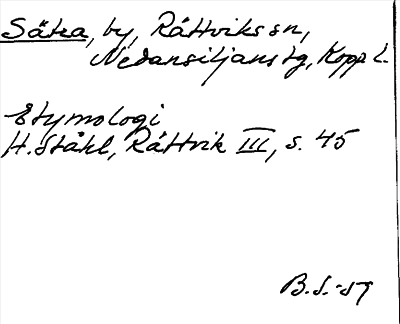 Sätra, by, Rättviks sn,
Nedansiljans tg, Kopp. l.
Etymologi
H. Ståhl, Rättvik III, s. 45
B.S.-59